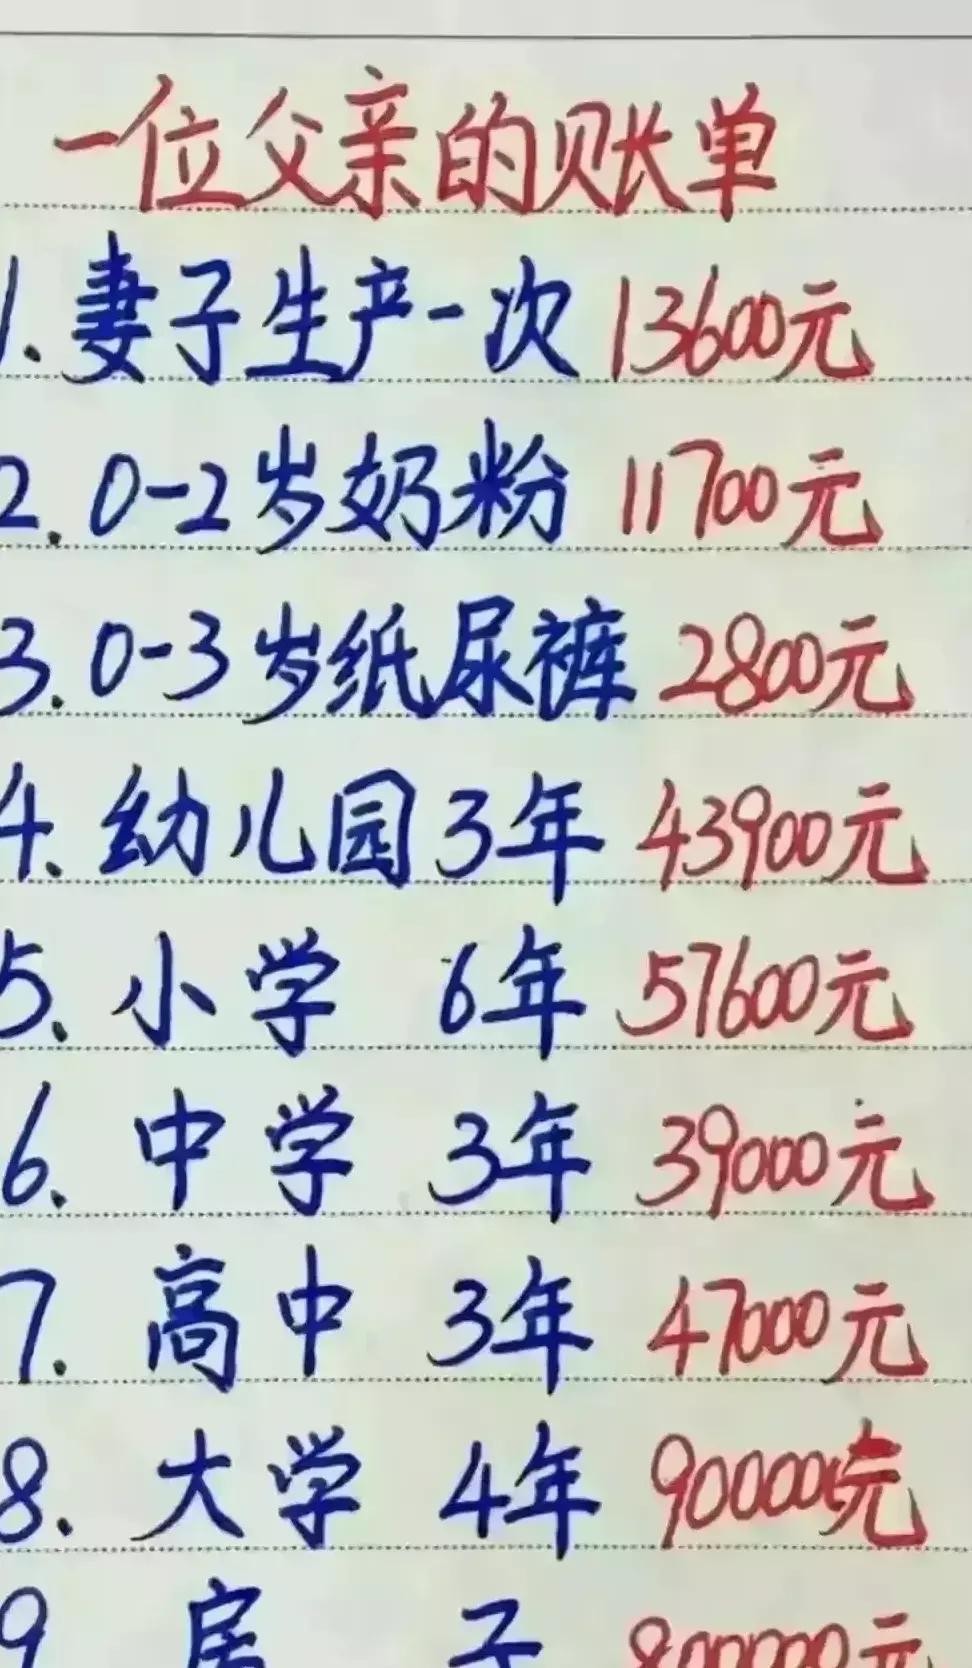 一位父亲的账单
1. 妻子生产一次 13600元
2. 0-2岁奶粉 11700元
3. 0-3岁纸尿裤 2800元
4. 幼儿园3年 43900元
5. 小学 6年 57600元
6. 中学 3年 39000元
7. 高中 3年 47000元
8. 大学 4年 90000元
9 房子 800000元